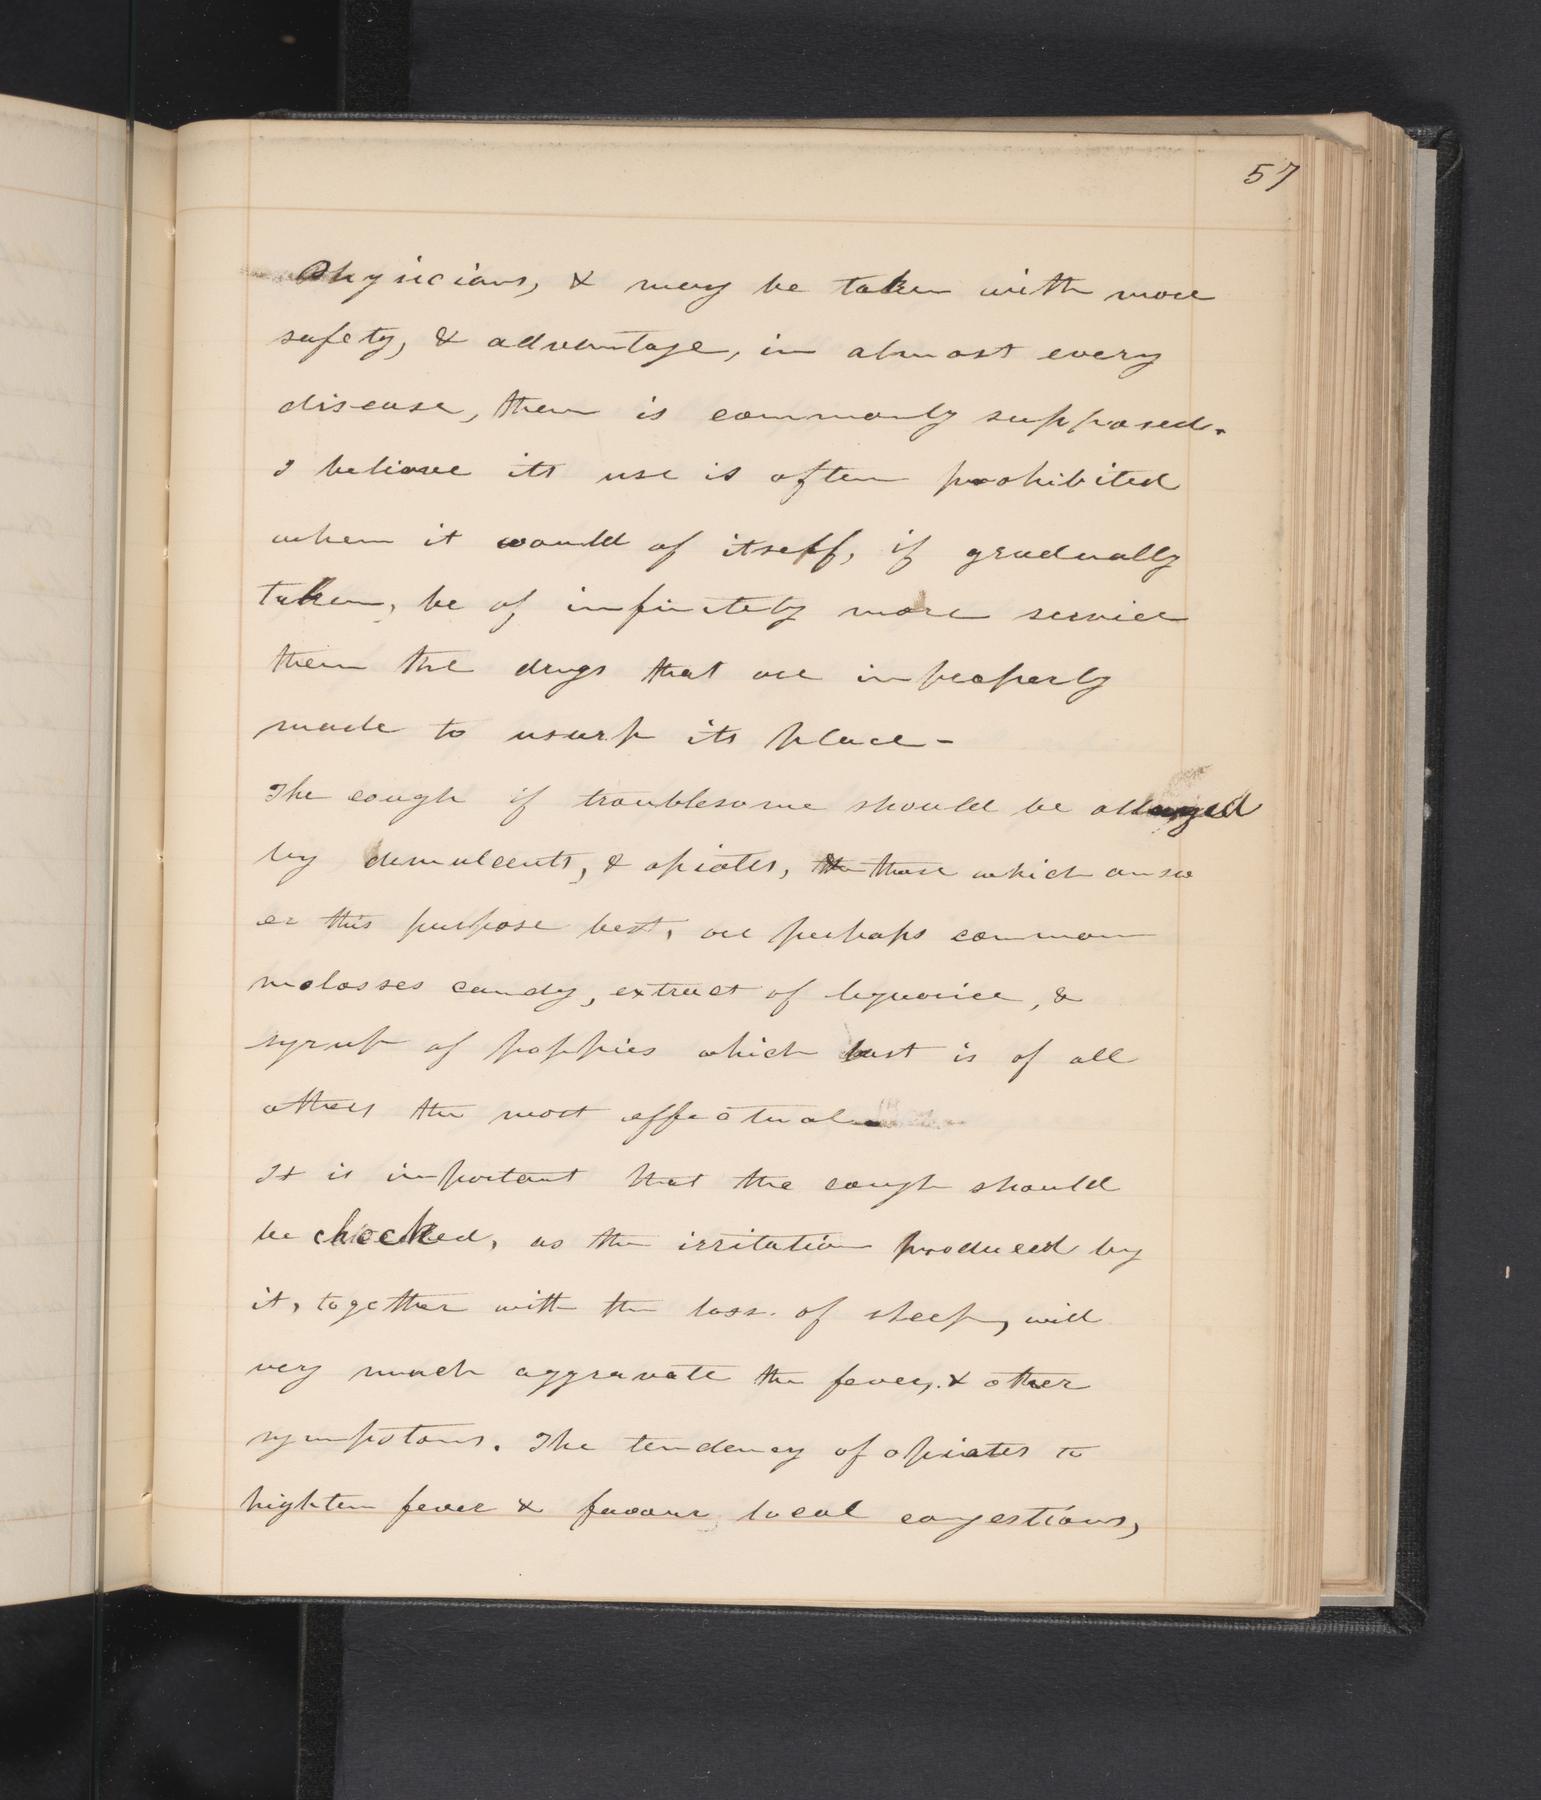 57
Physicians, & may be taken with more
safety, & advantage, in almost every
disease, then is commonly supposed.
I believe its use is often prohibited
when it would of itself, if gradually
taken, be of infinitely more service
then the drugs that are improperly
made to usurp its place -
The cough if troublesome should be allayed
by demulcents, & opiates, the those which answ
er this purpose best, are perhaps common
molosses candy, extract of liquorice, &
syrup of poppies which last is of all
others the most effectual
It is important that the cough should
be checked, as the irritation produced by
it, together with the loss of sleep, will
very much aggravate the fever, & other
symptoms. The tendency of opiates to
highten fever & favour local congestions,